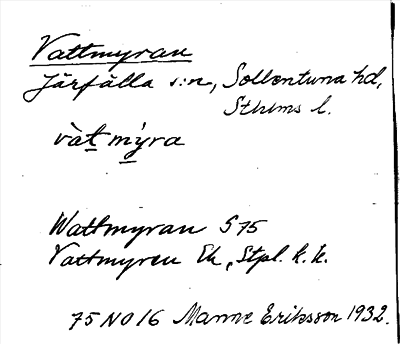 Vattmyran
Järfälla s:n, Sollentuna hd,
Sthlms l.
vàt mýra
Wattmyran S 75
Vattmyren Ek, Stpl. k. k.
75 NO 16 Manne Eriksson 1932.